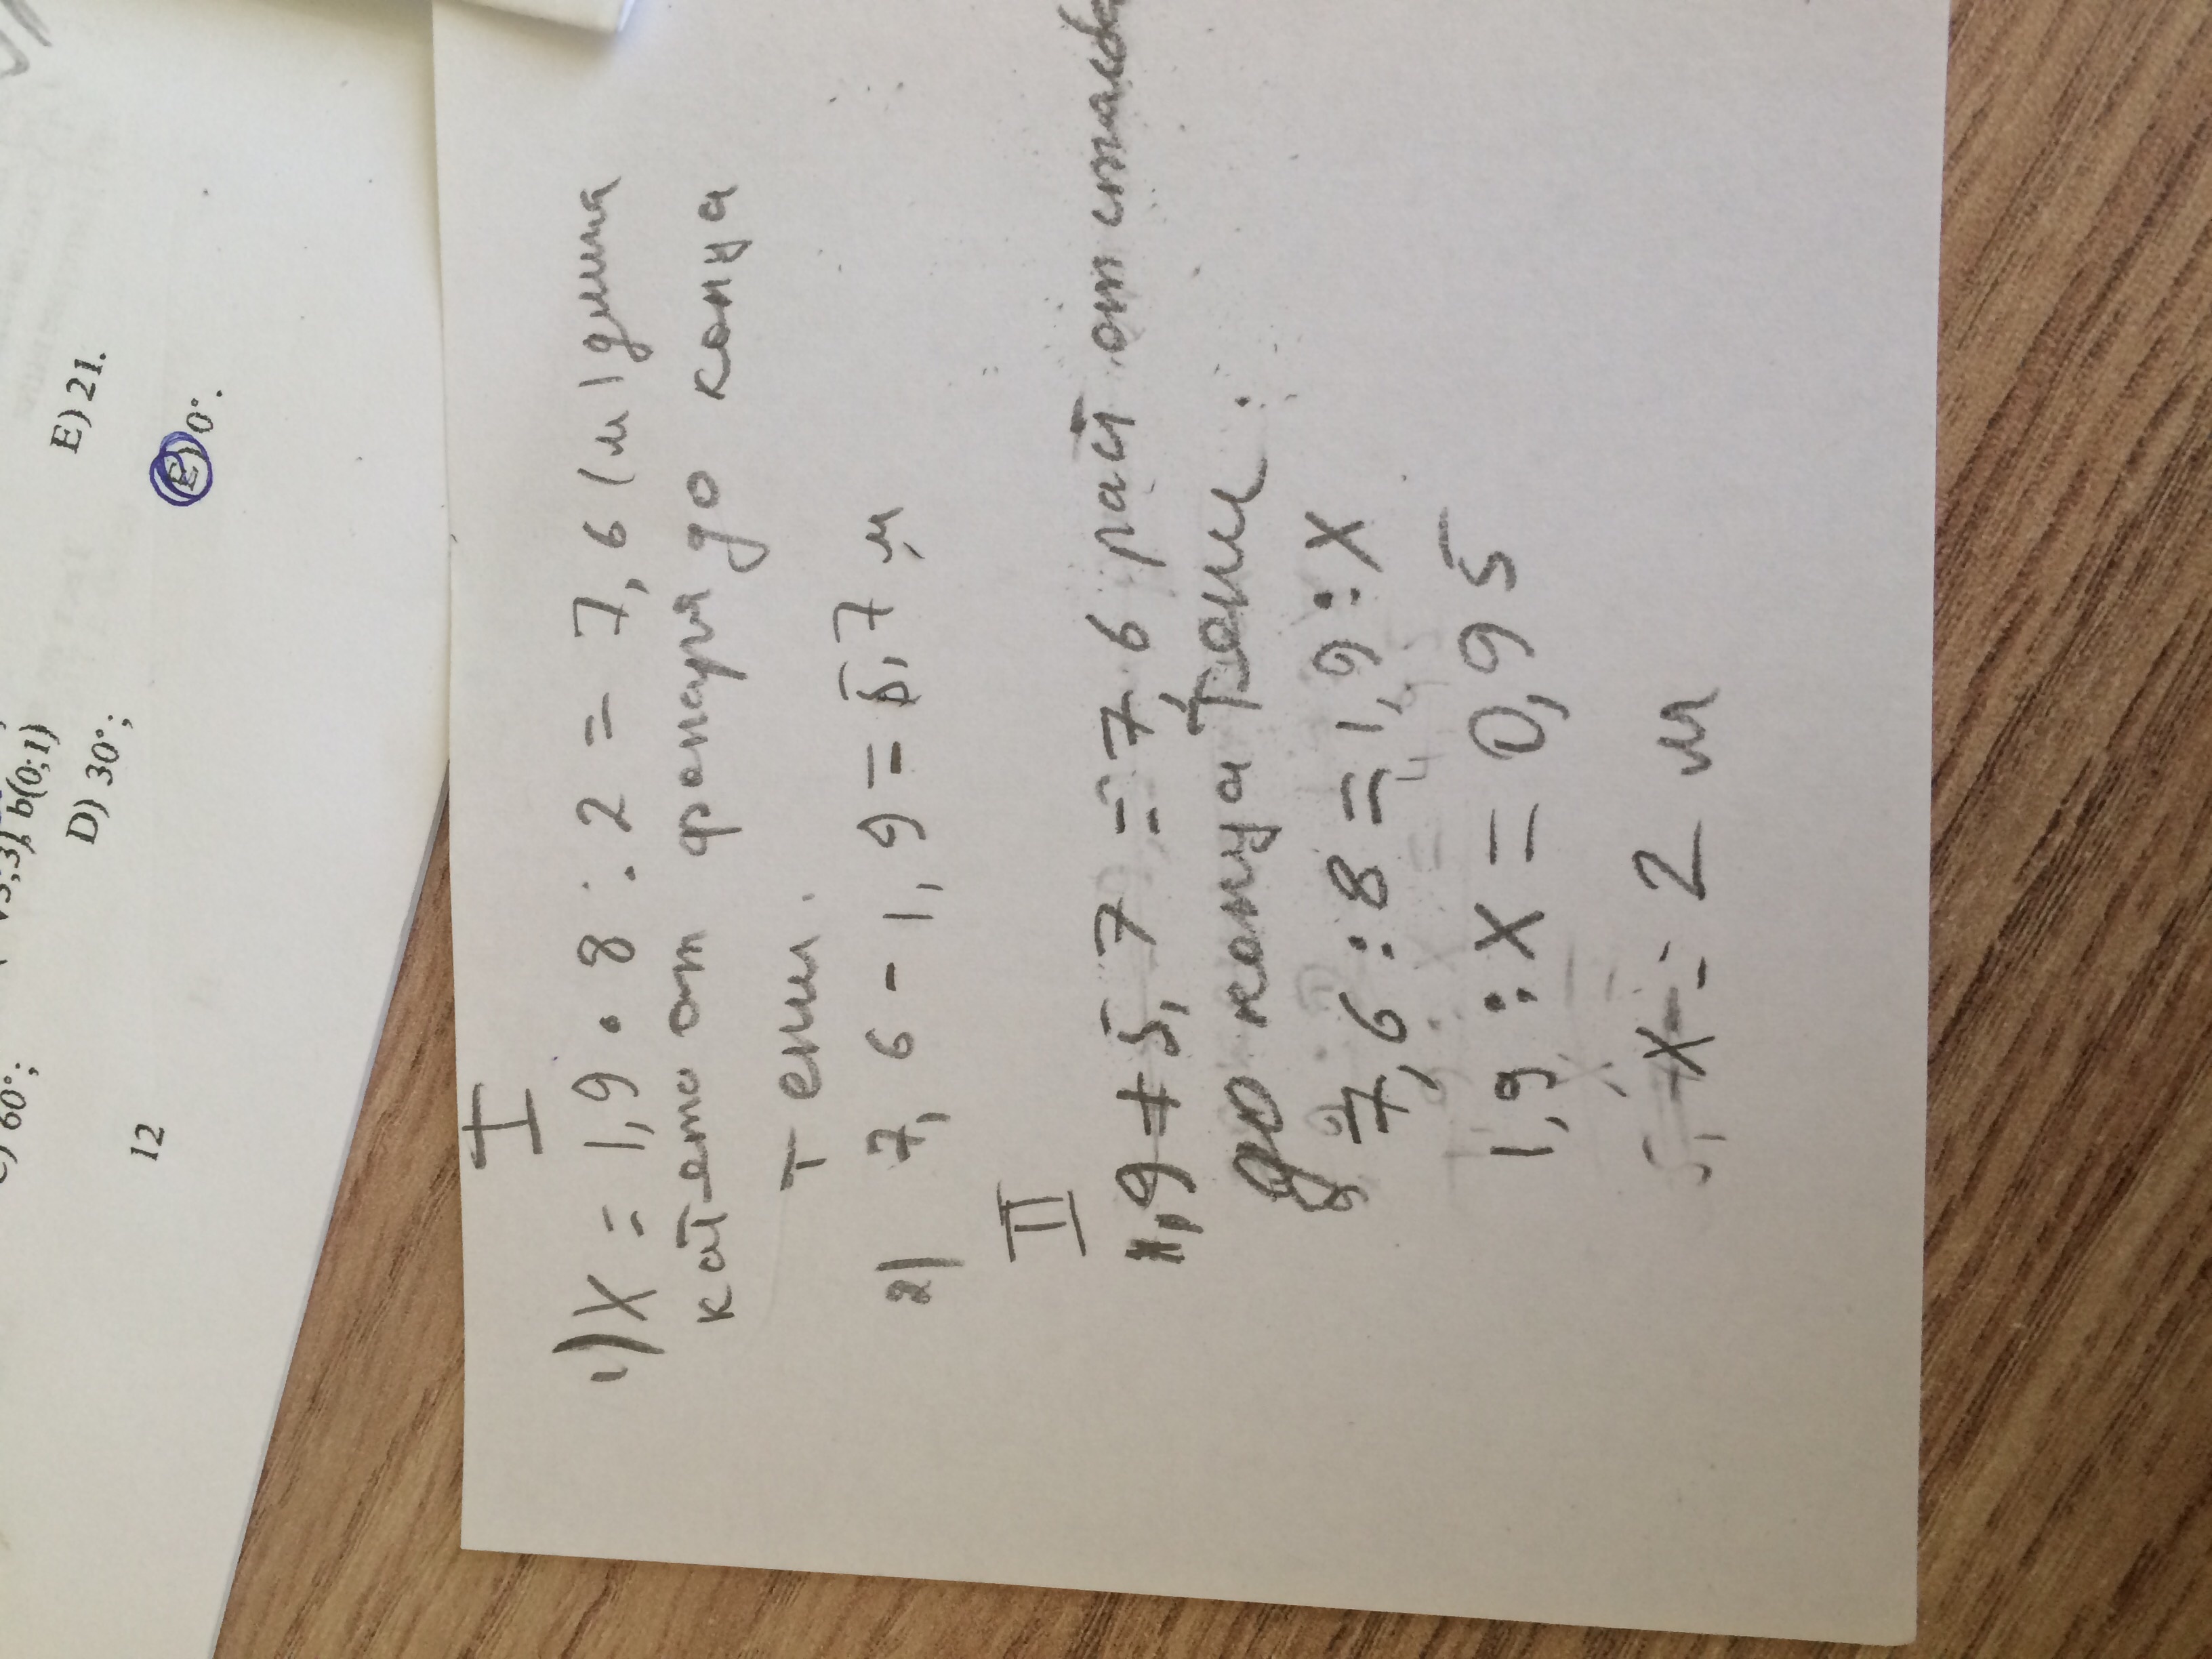 E) 21.
b(0;1)
60°;
D) 30°;
E) 0°.
12
I
1) X = 1,9 • 8 : 2 = 7,6 (м) длина
катета от фонаря до конца
тени.
2) 7,6 - 1,9 = 5,7 м
II
1,9 + 5,7 = 7,6 рас от столба
до конца тени.
7,6 : 8 = 1,9 : X
1,9 : X = 0,95
X = 2 м